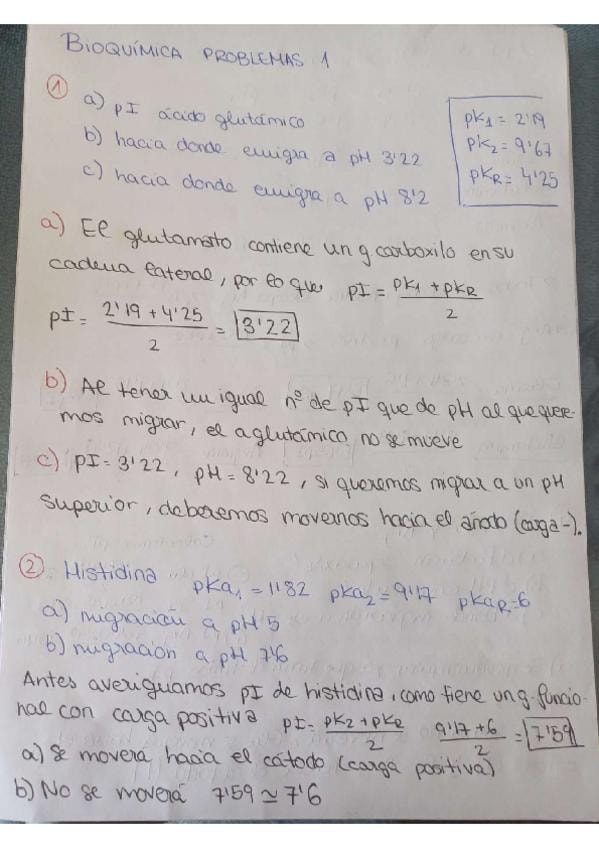 BIOQUÍMICA PROBLEMAS 1
① a) pI ácido glutámico
b) hacia donde emigra a pH 3'22
c) hacia donde emigra a pH 8'2
pK1 = 2'19
pK2 = 9'67
pKR = 4'25
a) El glutamato contiene un g carboxilo en su
cadena lateral, por lo que pI = pK1 + pKR / 2
pI = 2'19 + 4'25 / 2 = 3'22
b) Al tener un igual nº de pI que de pH al que quere-
mos migrar, el a glutámico no se mueve
c) pI = 3'22, pH = 8'22, si queremos migrar a un pH
superior, deberemos movernos hacia el ánodo (carga -).
② Histidina pKa1 = 1'82 pKa2 = 9'17 pKaR = 6
a) migración a pH 5
b) migración a pH 7'6
Antes averiguamos pI de histidina, como tiene un g. funcio-
nal con carga positiva pI = pK2 + pKR / 2 9'17 + 6 / 2 = 7'59
a) Se moverá hacia el cátodo (carga positiva)
b) No se moverá 7'59 ≃ 7'6